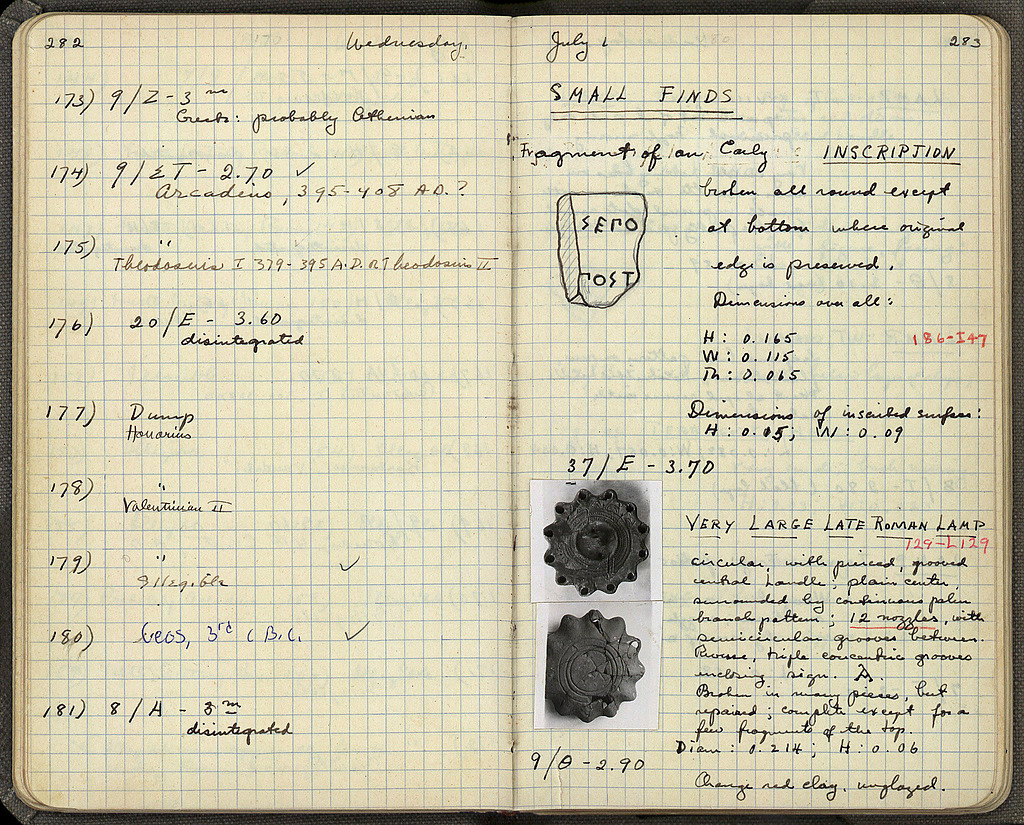 282 Wednesday,
173) 9/Z - 3 m
Greek: probably Athenian
174) 9/ΣT - 2.70 ✓
Arcadius, 395-408 A.D.?
175) "
Theodosius I 379-395 A.D. or Theodosius II
176) 20/E - 3.60
disintegrated
177) Dump
Honorius
178) "
Valentinian II
179) " ✓
Illegible
180) Ceos, 3rd C B.C. ✓
181) 8/H - 3 m
disintegrated
July 1 283
SMALL FINDS
Fragment of an Early INSCRIPTION
broken all round except
at bottom where original
edge is preserved.
ΣΕΠΟ
ΠΟΣΤ
Dimensions over all:
H: 0.165 186-I47
W: 0.115
Th: 0.065
Dimensions of inscribed surface:
H: 0.15; W: 0.09
37/E - 3.70
VERY LARGE LATE ROMAN LAMP
129-L129
circular, with pierced, grooved
central handle; plain center,
surrounded by continuous palm
branch pattern; 12 nozzles, with
semicircular grooves between.
Reverse, triple concentric grooves
enclosing sign. A.
Broken in many pieces, but
repaired; complete except for a
few fragments of the top.
Diam: 0.214; H: 0.06
9/Θ - 2.90
Orange red clay, unglazed.